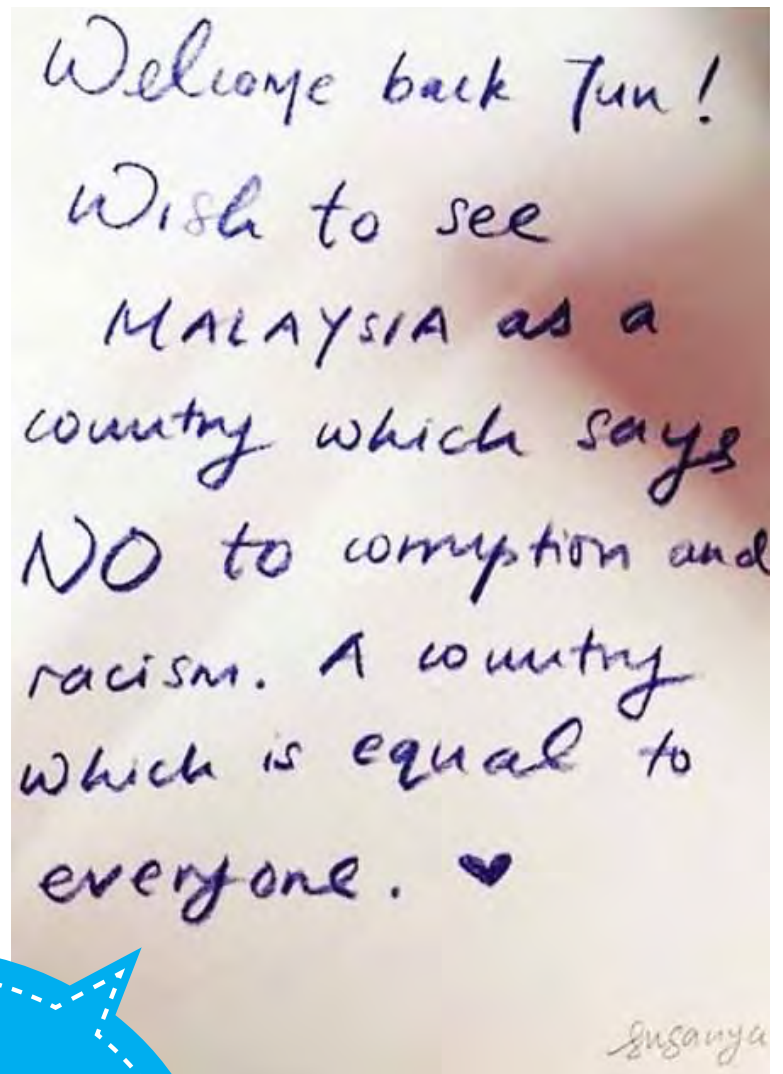 Welcome back Tun!
Wish to see
MALAYSIA as a
country which says
NO to corruption and
racism. A country
which is equal to
everyone. ♥
Suganya